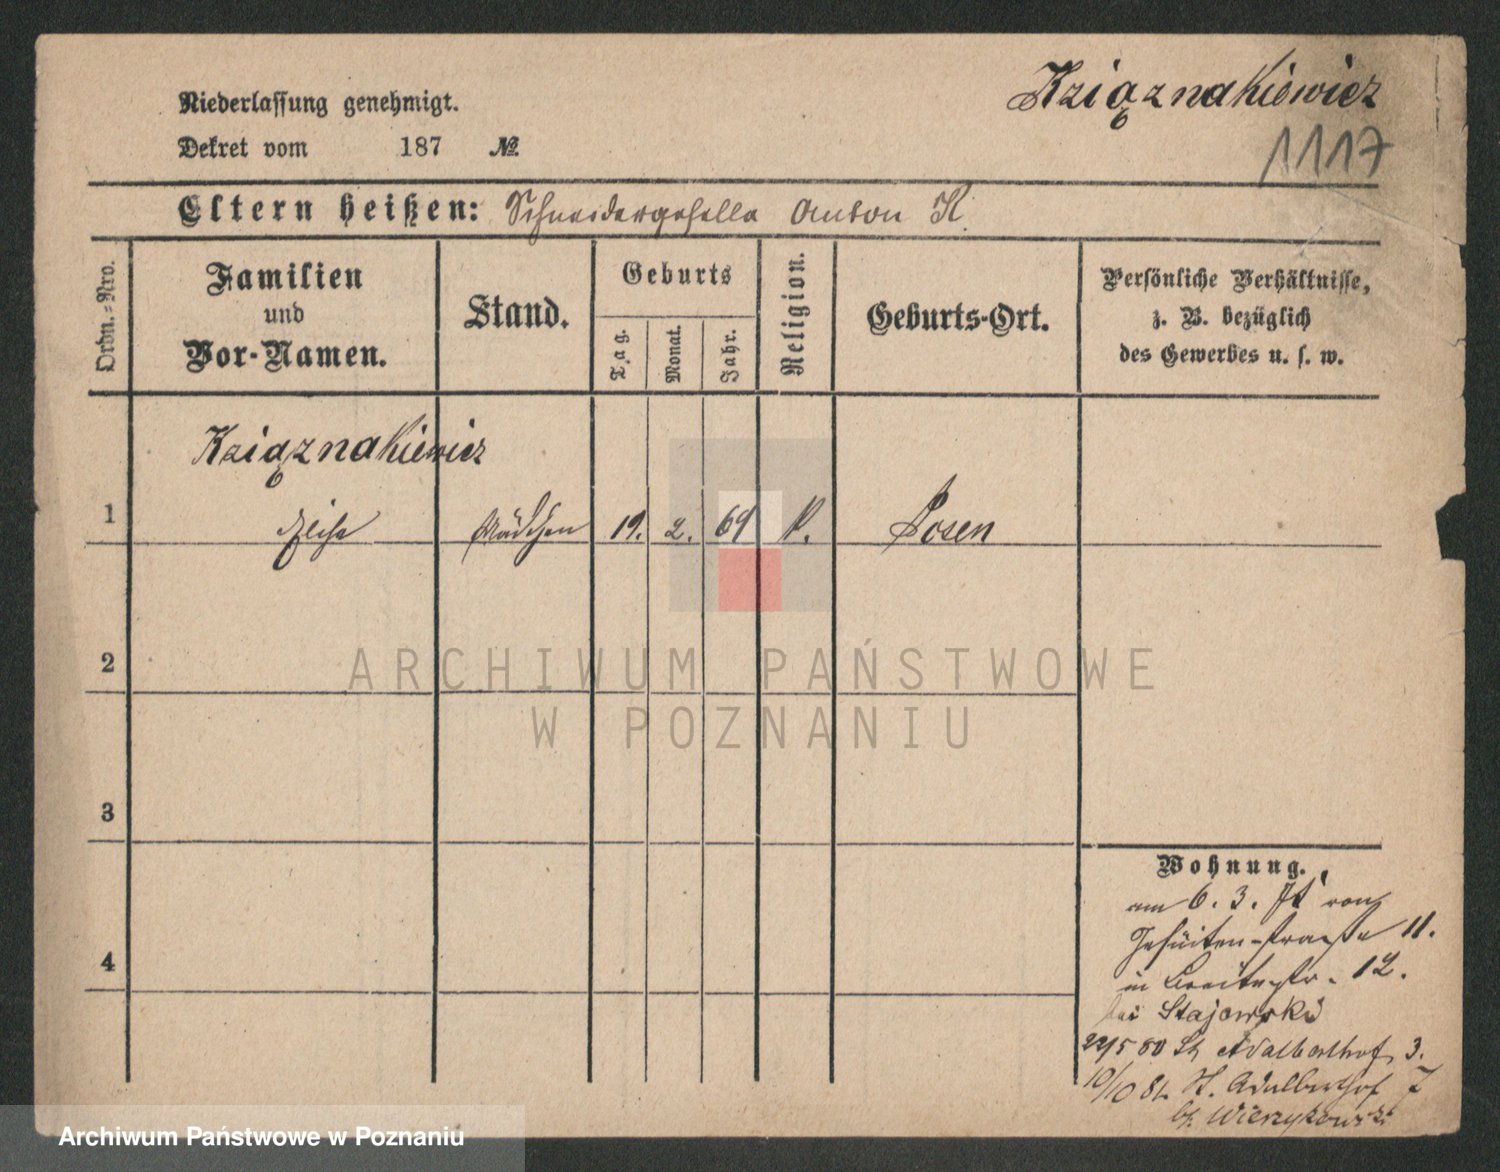 Kziąznakiewicz
Niederlassung genehmigt.
Dekret vom 187 №
1117
Eltern heißen: Schneidergeselle Anton K.
Ordn.-Nro.
Familien
und
Vor-Namen.
Stand.
Geburts
Tag.
Monat.
Jahr.
Religion.
Geburts-Ort.
Persönliche Verhältnisse,
z. B. bezüglich
des Gewerbes u. s. w.
Kziąznakiewicz
1 Elise Mädchen 19. 2. 69 K. Posen
2
ARCHIWUM PAŃSTWOWE
W POZNANIU
3
4
Wohnung.
am 6. 3. von
Jesuiten-strasse 11.
in Breitestr. 12.
bei Stajewski
22/5 80 St Adalberthof 3.
10/10 81 St. Adalberthof 7
b. Wierzykowski
Archiwum Państwowe w Poznaniu